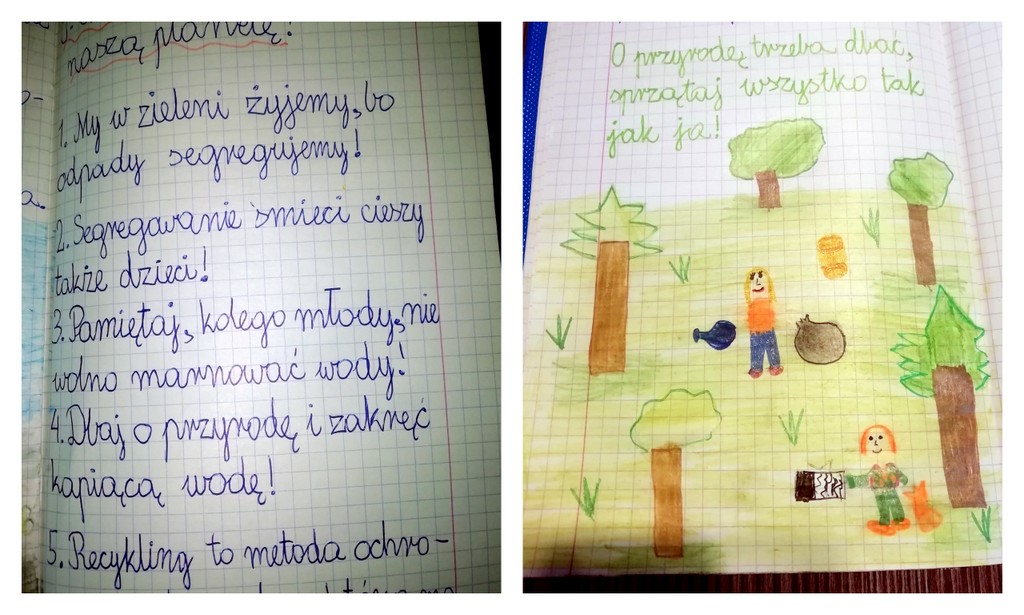 naszą planetę!
1. My w zieleni żyjemy, bo
odpady segregujemy!
2. Segregawanie śmieci cieszy
także dzieci!
3. Pamiętaj, kolego młody, nie
wolno marnować wody!
4. Dbaj o przyrodę i zakręć
kapiącą wodę!
5. Recykling to metoda ochro-
O przyrodę trzeba dbać,
sprzątaj wszystko tak
jak ja!